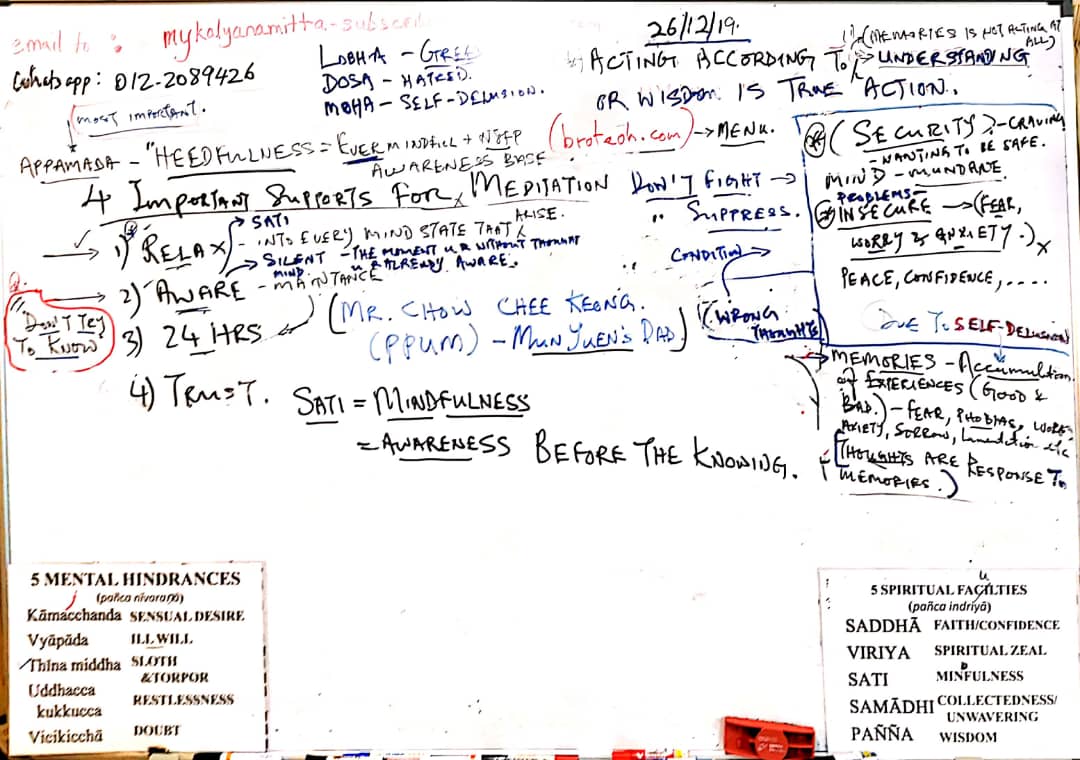 Email to : mykalyanamitta-subscri
Whatsapp: 012-2089426
LOBHA - GREED
DOSA - HATRED.
MOHA - SELF-DELUSION.
26/12/19.
(MEMORIES IS NOT ACTING AT ALL)
ACTING ACCORDING TO UNDERSTANDING
OR WISDOM IS TRUE ACTION.
(most important.
APPAMADA - "HEEDFULNESS = EVER MINDFULL +
AWARENESS BASE
(broteoh.com) → MENU.
4 IMPORTANT SUPPORTS FOR MEDITATION
1) RELAX
SATI
- INTO EVERY MIND STATE THAT ARISE.
SILENT MIND - THE MOMENT U R WITHOUT THOUGHT
U R ALREADY AWARE.
2) AWARE - MAINTANCE
3) 24 HRS
(MR. CHOW CHEE KEONG.
(PPUM) - MUN YUEN'S DAD)
4) TRUST.
"DON'T TEY
TO KNOW"
SATI = MINDFULNESS
= AWARENESS BEFORE THE KNOWING.
DON'T FIGHT →
" SUPPRESS.
CONDITION
(WRONG
THOUGHTS)
(SECURITY?- CRAVING
- WANTING TO BE SAFE.
MIND - MUNDANE
PROBLEMS-
INSECURE → (FEAR,
WORRY & ANXIETY.)
PEACE, CONFIDENCE,....
DUE TO SELF-DELUSION
MEMORIES - Accumultion
of EXPERIENCES (GOOD &
BAD.) - FEAR, PHOBIAS, WORRY
AXIETY, SORROW, lamentation etc
(THOUGHTS ARE RESPONSE TO
MEMORIES.)
5 MENTAL HINDRANCES
(pañca nīvaraṇā)
Kāmacchanda SENSUAL DESIRE
Vyāpāda ILL WILL
Thīna middha SLOTH
&TORPOR
Uddhacca
kukkucca RESTLESSNESS
Vicikicchā DOUBT
5 SPIRITUAL FACILTIES
u
(pañca indriyā)
SADDHĀ FAITH/CONFIDENCE
VIRIYA SPIRITUAL ZEAL
SATI MINFULNESS
D
SAMĀDHI COLLECTEDNESS/
UNWAVERING
PAÑÑA WISDOM